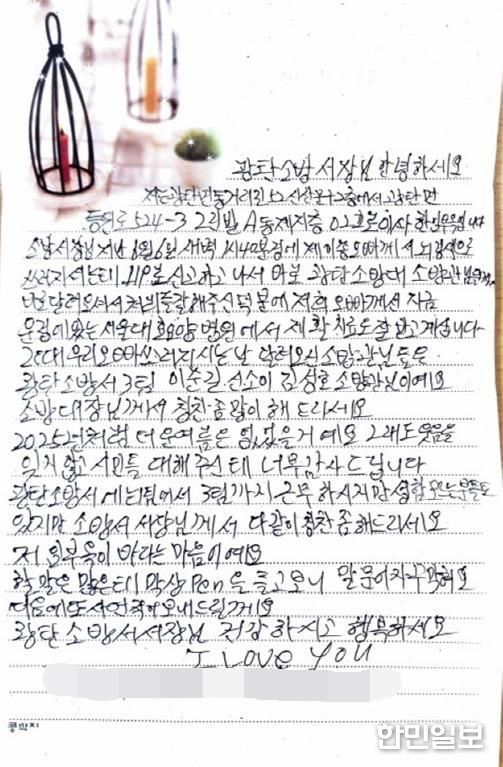 광탄소방서장님 안녕하세요
저는 광탄면 동거리 에서 광탄면
등원로 524-3 2리빌 A동 제지층 02호로 이사 한
소방서장님 지난 8월6일 새벽 1시40분경에 제 오빠께서 뇌경색으로
쓰러지셔는데 119로 신고하고 나서 바로 광탄소방대 소방관님
달려오셔서 처치를 잘해주신덕분에 저희 오빠께선 지금
운정에있는 서울대효요양병원에서 재활치료도 잘 받고 계십니다
그런대 우리오빠쓰러지시는날 달려오신소방관님들은
광탄소방서3팀 이순길 선소이 김성호 소방관님이예요
소방대장님께서 칭찬좀많이 해 드리세요
2025년처럼 더운여름은 없었을거예요 그래도 웃음을
잊지않고 시민들 대해주신테 너무감사드립니다
광탄소방서에 1팀에서 3팀까지 근무하시지만
있지만 소방서 서장님께서 다같이 칭찬좀해드리세요
저 의부욱이바라는 마음이예요
할말은 많은데 막상 Pen을 들고보니 말문이자꾸막혀요
다음에또사연적어보내드릴께요
광탄소방서서장님 건강하시고 행복하세요
I LOVE YOU
콩깍지
한민일보